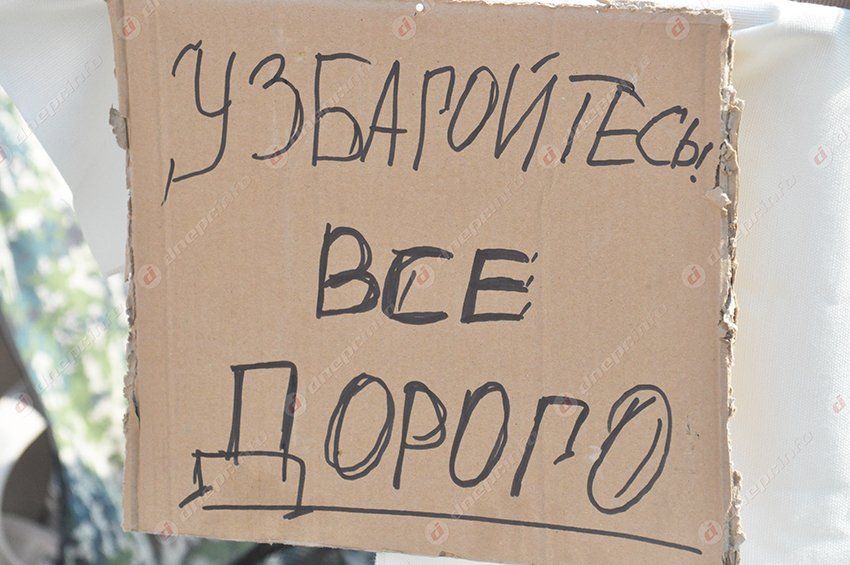 УЗБАГОЙТЕСЬ!
ВСЕ
ДОРОГО
dneprinfo